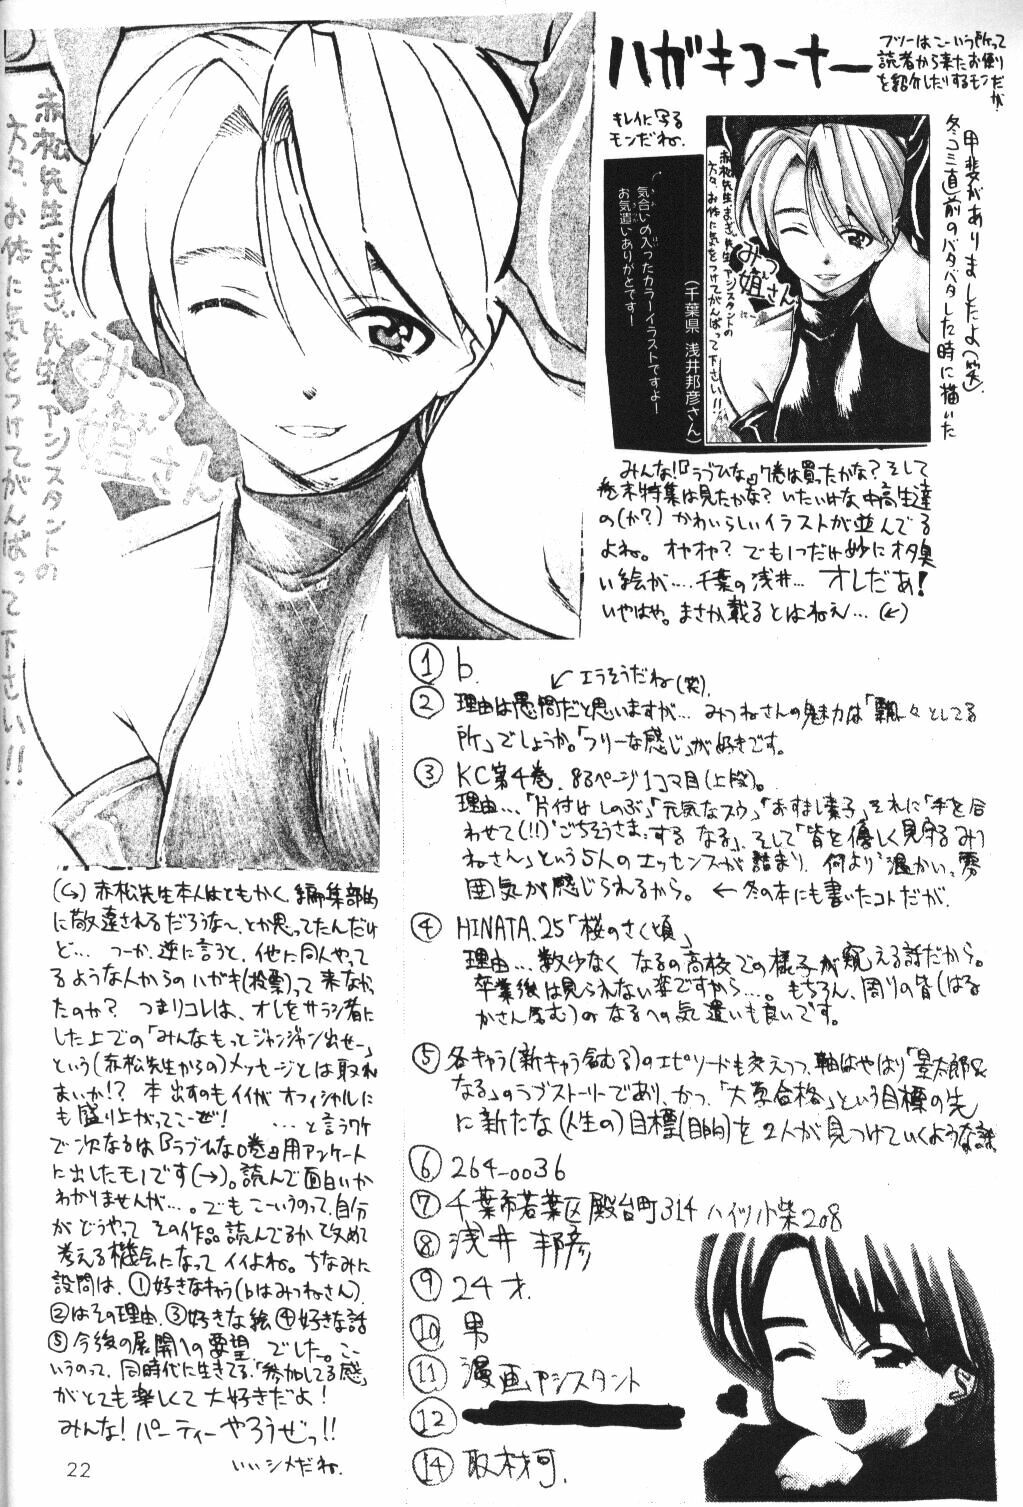 ハガキコーナー
フツーはこーいう所って
読者から来たお便り
を紹介したりするモンだが
キレイに写る
モンだね.
甲斐がありましたよ(笑).
冬コミ直前のバタバタした時に描いた
気合いの入ったカラーイラストですよー
お気遣いありがとです!
(千葉県 浅井邦彦さん)
赤松先生、まぎぃ先生、アシスタントの
方々、お体に気をつけてがんばって下さい!!
みつ姐さん
赤松先生、まぎぃ先生、アシスタントの
方々、お体に気をつけてがんばって下さい!!
みつ姐さん
みんな!『ラブひな』7巻は買ったかな?そして
巻末特集は見たかな? いたいけな中高生達
の(か?)かわいらしいイラストが並んでる
よね。オヤオヤ? でも1つだけ妙にオタ臭
い絵が‥‥千葉の浅井… オレだぁ!
いやはや。まさか載るとはねえ…(←)
① b.
← エラそうだね(笑).
② 理由は愚問だと思いますが… みつねさんの魅力は「飄々としてる
所」でしょうか。「フリーな感じ」が好きです。
③ KC第4巻. 88ページ1コマ目(上段)。
理由…、「片付けしのぶ」「元気なスゥ」「おすまし素子」それに「手を合
わせて(!!)"ごちそうさま"する なる」、そして「皆を優しく見守るみつ
ねさん」という5人のエッセンスが詰まり、何より"温かい"雰
囲気が感じられるから。 ← 冬の本にも書いたコトだが.
④ HINATA.25「桜のさく頃」
理由…数少なく なるの高校での様子が窺える話だから。
卒業後は見られない姿ですから…。もちろん、周りの皆(はる
かさん含む)の なるへの気遣いも良いです。
⑤ 各キャラ(新キャラ含むる)のエピソードも交えつつ、軸はやはり「景太郎&
なる」のラブストーリーであり、かつ、「大学合格」という目標の先
に新たな(人生の)目標(目的)を2人が見つけていくような話
⑥ 264-0036
⑦ 千葉市若葉区殿台町314 ハイツ小柴208
⑧ 浅井 邦彦
⑨ 24才.
⑩ 男
⑪ 漫画アシスタント
⑫
⑭ 取材可.
(↪) 赤松先生本人はともかく、編集部的
に敬遠されるだろうな〜、とか思ってたんだけ
ど… つーか、逆に言うと、他に同人やって
るような人からのハガキ(投票)って来なかっ
たのか? つまりコレは、オレをサラシ者に
した上での「みんなもっとジャンジャン出せー」
という(赤松先生からの)メッセージとは取れ
まいか!? 本出すのもイイがオフィシャルに
も盛り上がってこーぜ! …と言うワケ
で次なるは『ラブひな0巻』用アンケート
に出したモノです(→)。読んで面白いか
わかりませんが…。でもこーいうのって、自分
がどうやって その作品読んでるか改めて
考える機会になってイイよね。ちなみに
設問は、①好きなキャラ(bはみつねさん).
②はその理由. ③好きな絵 ④好きな話
⑤今後の展開への要望 でした。こー
いうのって、同時代に生きてる、「参加してる感」
がとても楽しくて大好きだよ!
みんな! パーティーやろうぜっ!!
いいシメだね.
22